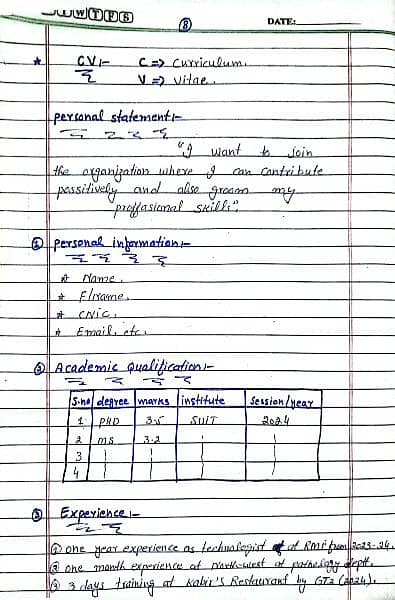 ⑧ DATE:
* CV:- C => Curriculum.
V => Vitae.
personal statement:-
"I want to Join
the organization where I can contribute
possitively and also groom my
proffasional skills".
① personal information:-
* Name.
* F/name.
* CNIC.
* Email. etc.
② Academic Qualification:-
S.no degree marks institute Session/year
1 PHD 3.5 SUIT 2024
2 MS 3.2
3
4
③ Experience:-
① one year experience as technologist at RMI from 2023-24.
② one month experience at North-west at pathology deptt.
③ 3 days training at Kabir's Restaurant by GTa (2024).